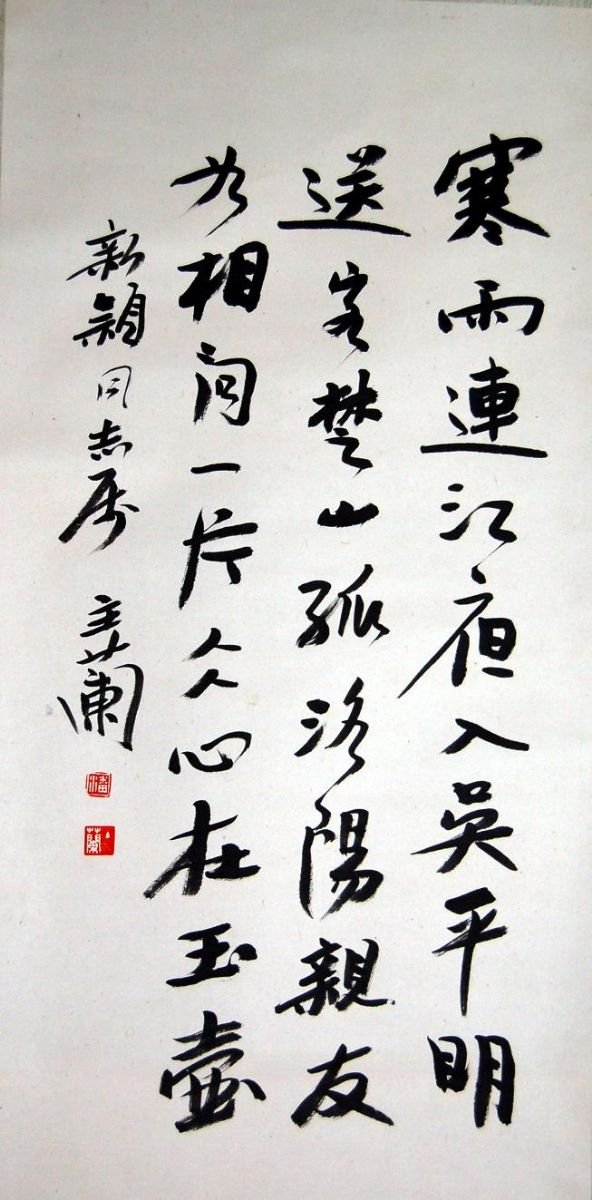 寒雨連江夜入吳平明
送客楚山孤洛陽親友
如相問一片仌心在玉壺
新穎同志属 主蘭
潘
主蘭